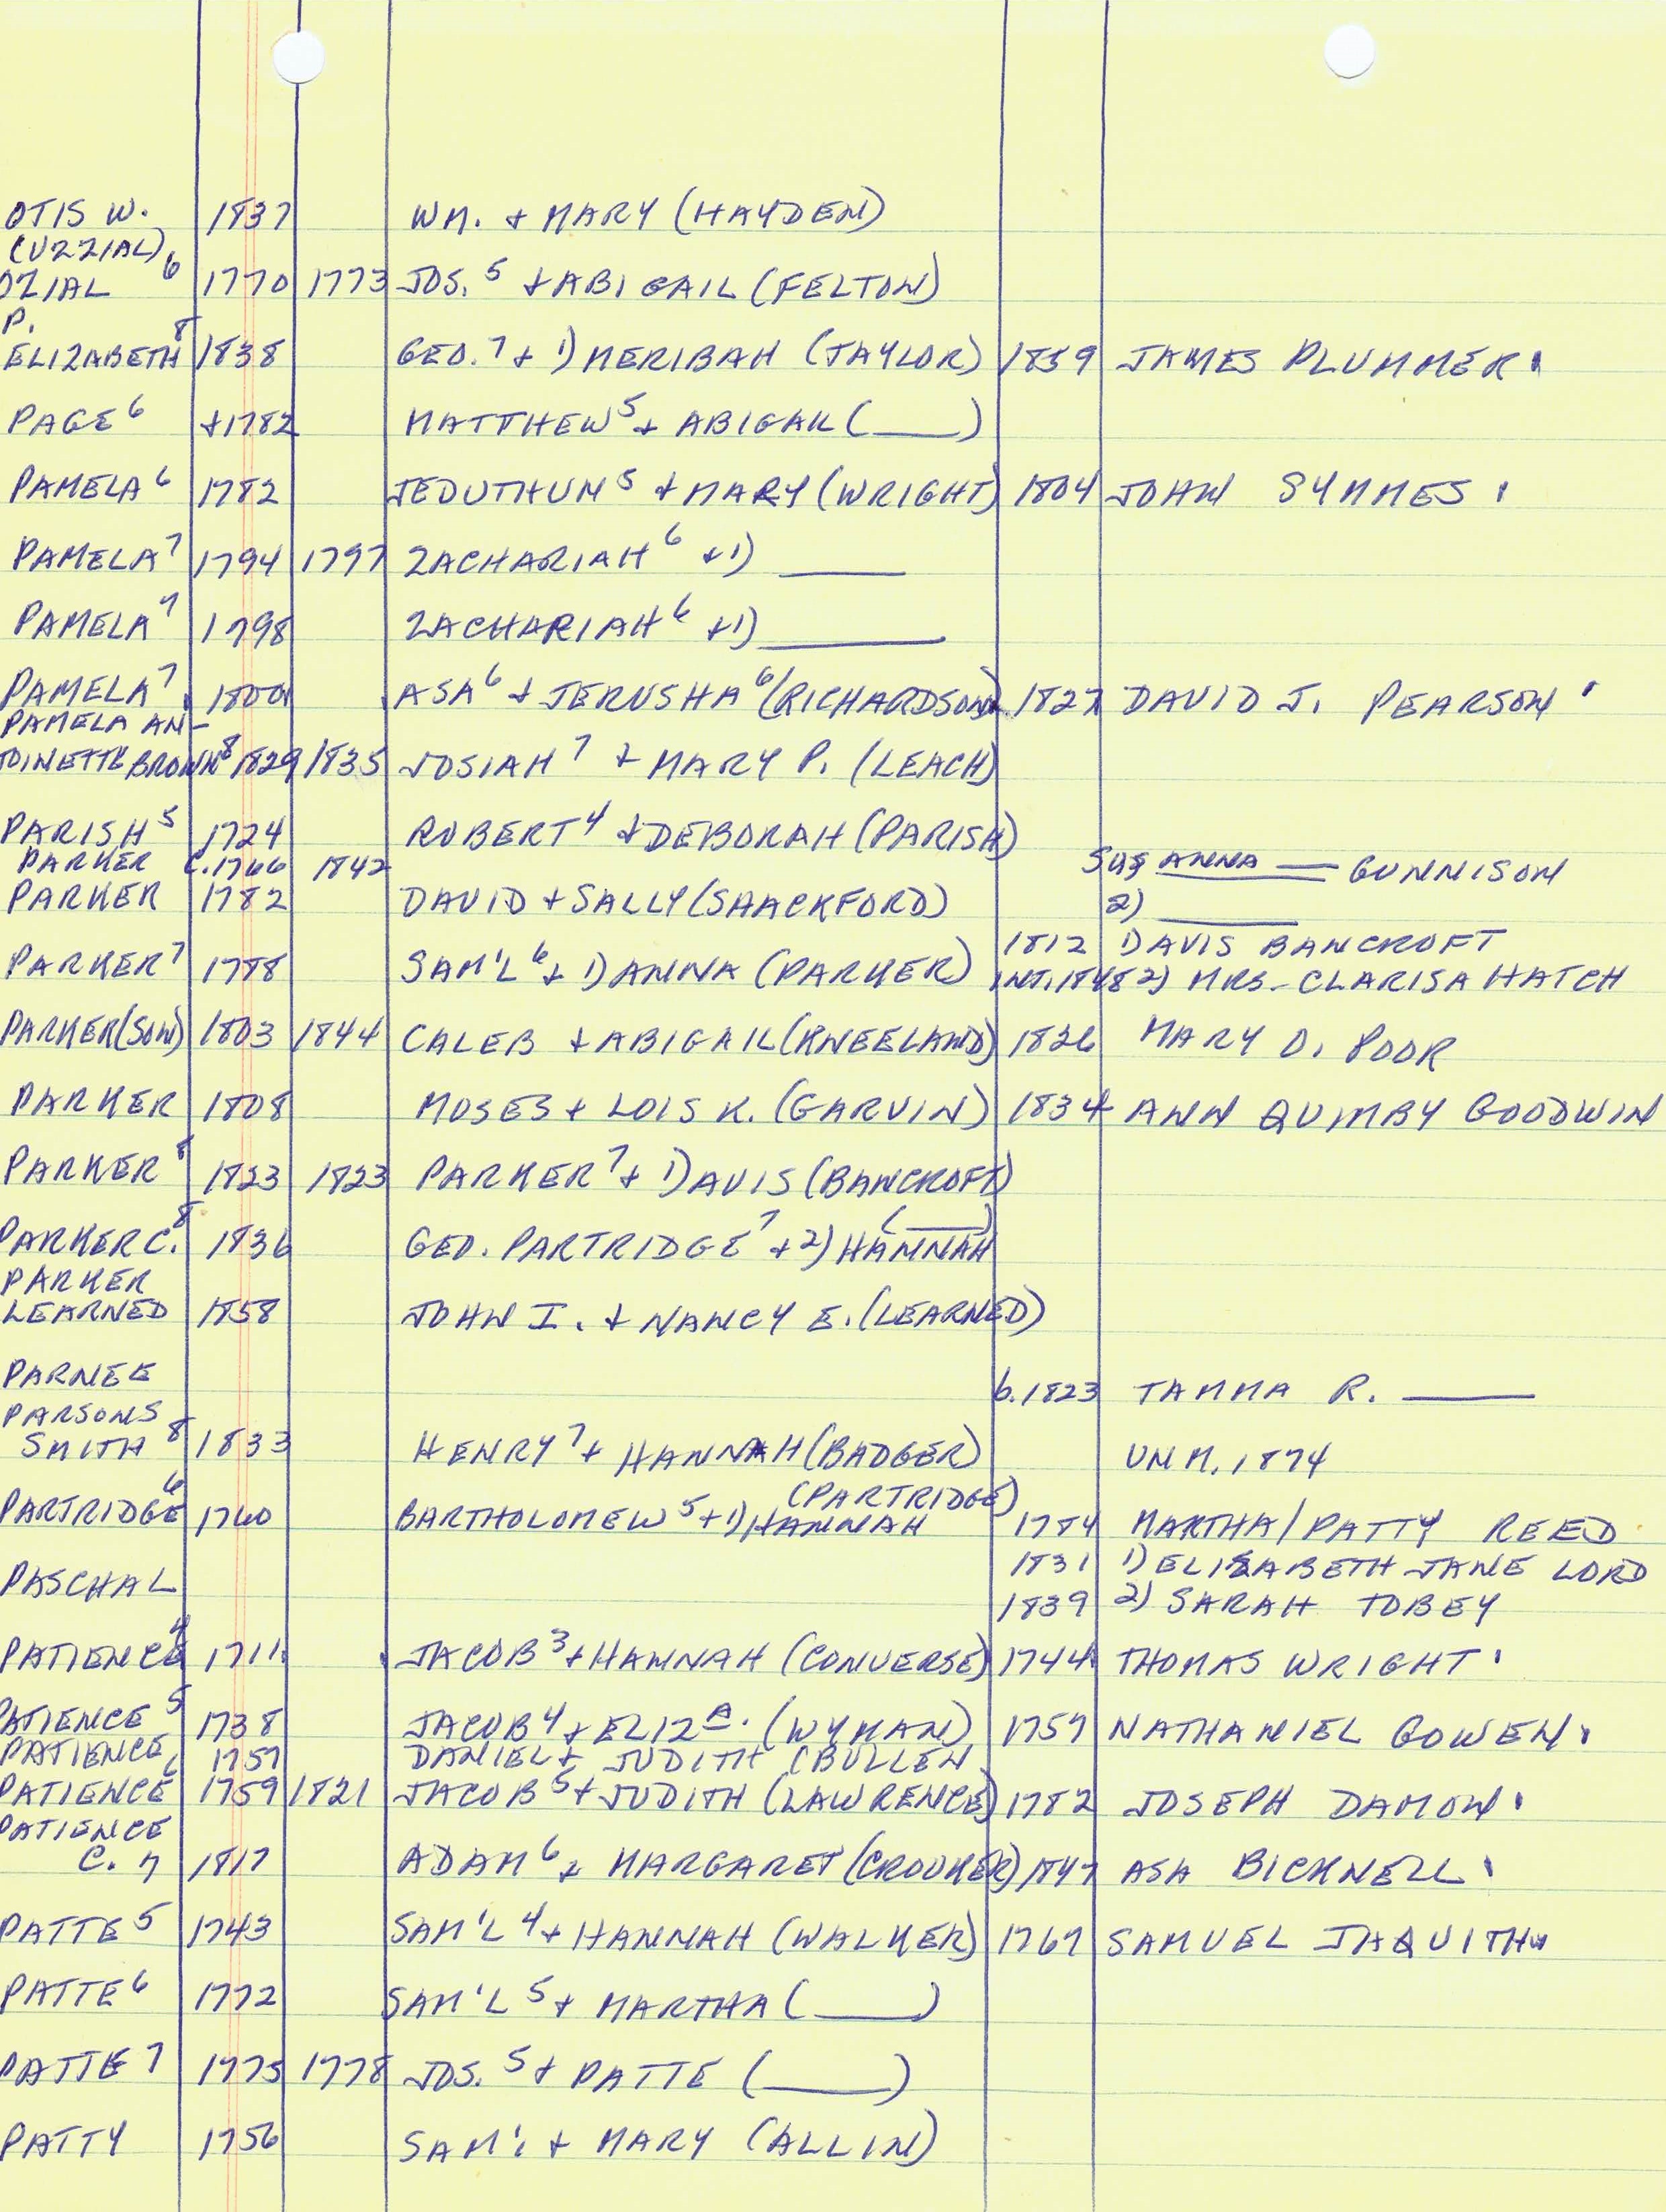 OTIS W. 1837 WM. + MARY (HAYDEN)
(UZZIAL)
OZIAL 6 1770 1773 JOS. 5 + ABIGAIL (FELTON)
P.
ELIZABETH 8 1838 GEO. 7 + 1) MERIBAH (TAYLOR) 1859 JAMES PLUMMER.
PAGE 6 +1782 MATTHEW 5 + ABIGAIL (___)
PAMELA 6 1782 JEDUTHUN 5 + MARY (WRIGHT) 1804 JOHN SYMMES.
PAMELA 7 1794 1797 ZACHARIAH 6 + 1) ___
PAMELA 7 1798 ZACHARIAH 6 + 1) ___
PAMELA 7 ASA 6 + JERUSHA 6 (RICHARDSON) 1827 DAVID J. PEARSON
PAMELA AN-
TOINETTE BROWN 8 1829 1835 JOSIAH 7 + MARY P. (LEACH)
PARISH 5 1724 ROBERT 4 + DEBORAH (PARISH)
PARKER C.1766 1842 SUSANNA ___ GUNNISON
PARKER 1782 DAVID + SALLY (SHACKFORD) 2) ___
1812 1) AVIS BANCROFT
PARKER 7 1788 SAM'L 6 + 1) ANNA (PARKER) INT. 1848 2) MRS. CLARISA HATCH
PARKER (SON) 1803 1844 CALEB + ABIGAIL (KNEELAND) 1826 MARY O. POOR
PARKER 1808 MOSES + LOIS K. (GARVIN) 1834 ANN QUIMBY GOODWIN
PARKER 8 1823 1823 PARKER 7 + 1) AVIS (BANCROFT)
(___)
PARKER C. 8 1836 GEO. PARTRIDGE 7 + 2) HANNAH
PARKER
LEARNED 1858 JOHN I. + NANCY E. (LEARNED)
PARNEE b. 1823 TAMMA R. ___
PARSONS
SMITH 8 1833 HENRY 7 + HANNAH (BADGER) UNM. 1874
(PARTRIDGE)
PARTRIDGE 6 1760 BARTHOLOMEW 5 + 1) HANNAH 1784 MARTHA/PATTY REED
1831 1) ELIZABETH JANE LORD
PASCHAL
1839 2) SARAH TOBEY
PATIENCE 4 1711 JACOB 3 + HANNAH (CONVERSE) 1744 THOMAS WRIGHT.
PATIENCE 5 1738 JACOB 4 + ELIZA. (WYMAN) 1757 NATHANIEL GOWEN.
PATIENCE 1757 DANIEL + JUDITH (BULLEN
PATIENCE 6 1759 1821 JACOB 5 + JUDITH (LAWRENCE) 1782 JOSEPH DAMON.
PATIENCE
C. 7 1817 ADAM 6 + MARGARET (CROOKER) 1847 ASA BICKNELL.
PATTE 5 1743 SAM'L 4 + HANNAH (WALKER) 1767 SAMUEL JAQUITH
PATTE 6 1772 SAM'L 5 + MARTHA (___)
PATTE 7 1775 1778 JOS. 5 + PATTE (___)
PATTY 1756 SAM'L + MARY (ALLIN)